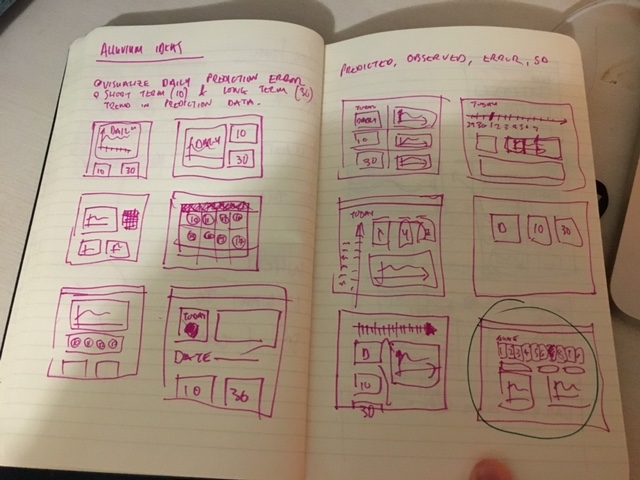 ALLUVIUM IDEAS
VISUALIZE DAILY PREDICTION ERROR
SHORT TERM (10) & LONG TERM (30)
TREND IN PREDICTION DATA.
DAILY
10 30
DAILY
10
30
TODAY
DATE
10 30
PREDICTED, OBSERVED, ERROR, SD
TODAY
DAILY
10
30
TODAY
29 30 1 2 3 4 5 6 7
TODAY
D 10 30
D
10
30
JUNE
1 2 3 4 5 6